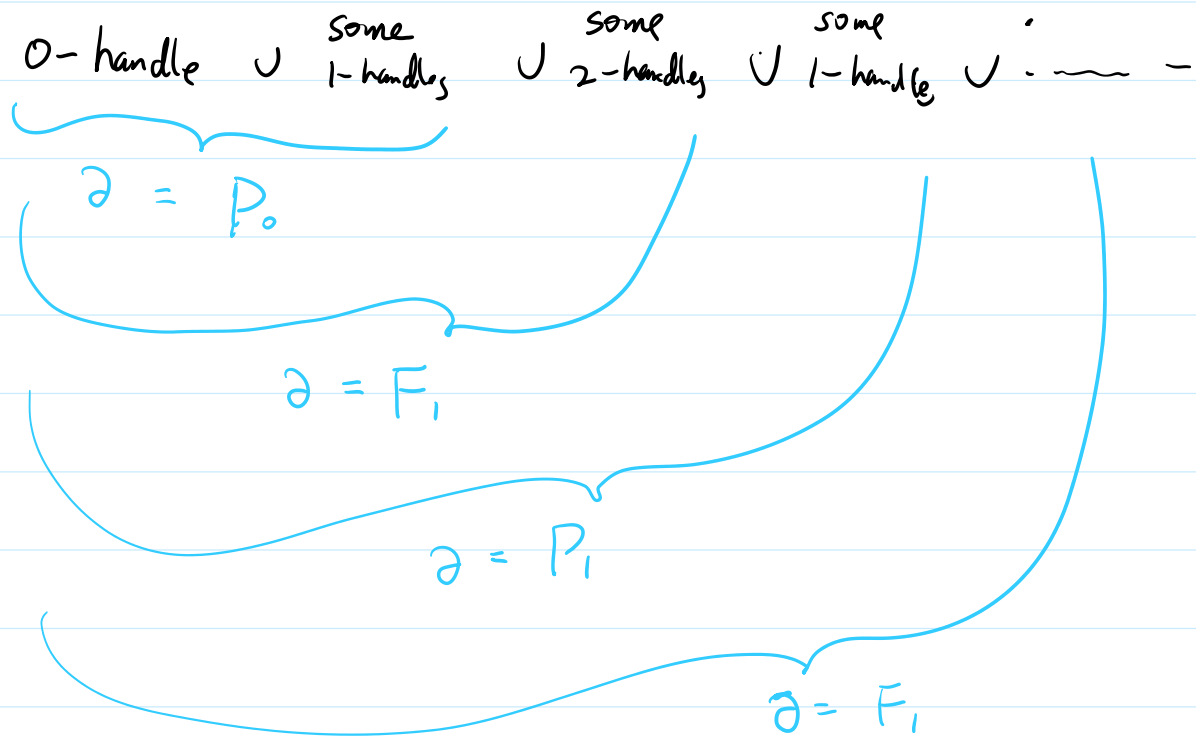 0-handle ∪ some 1-handles ∪ some 2-handles ∪ some 1-handle ∪ : —— –
∂ = P₀
∂ = F₁
∂ = P₁
∂ = F₁